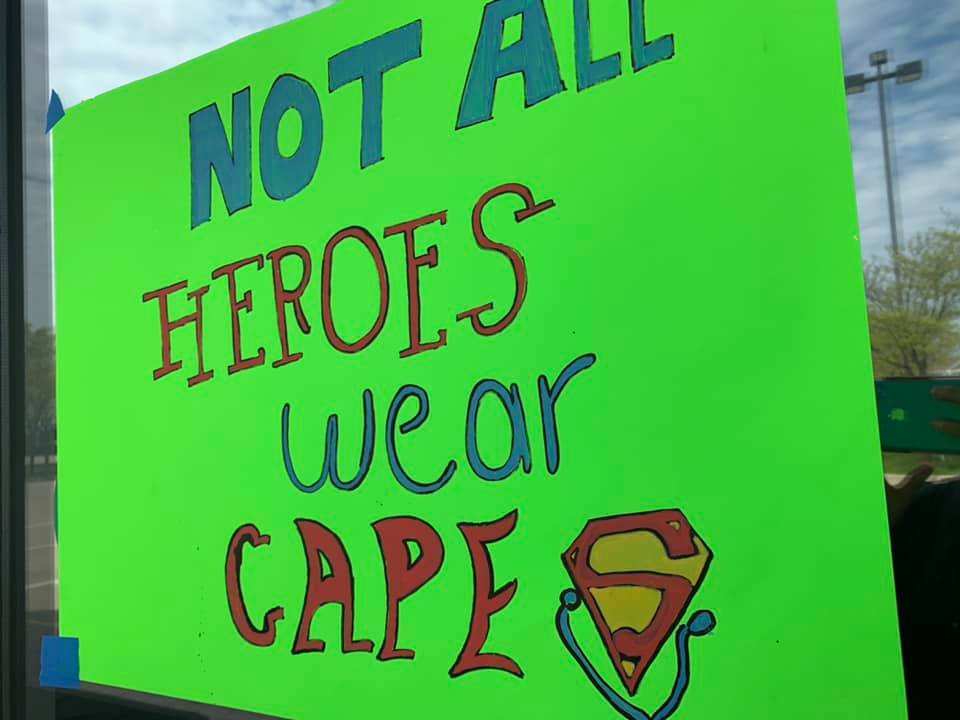 NOT ALL
HEROES
wear
CAPES